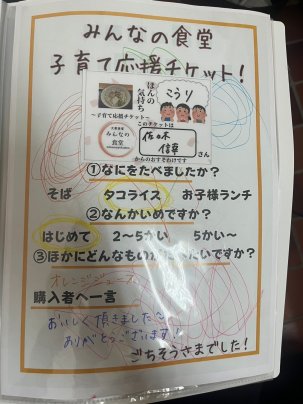 みんなの食堂
子育て応援チケット!
ほんの
気持ち
こうり
~子育て応援チケット~
このチケットは
みんなの
食堂
佐々木
信幸
さん
からのおすそわけです
①なにをたべましたか?
そば タコライス お子様ランチ
②なんかいめですか?
はじめて 2~5かい 5かい~
③ほかにどんなもいがたべたいですか?
オレンジジュース
購入者へ一言
おいしく頂きました~
ありがとうございます!
ごちそうさまでした!